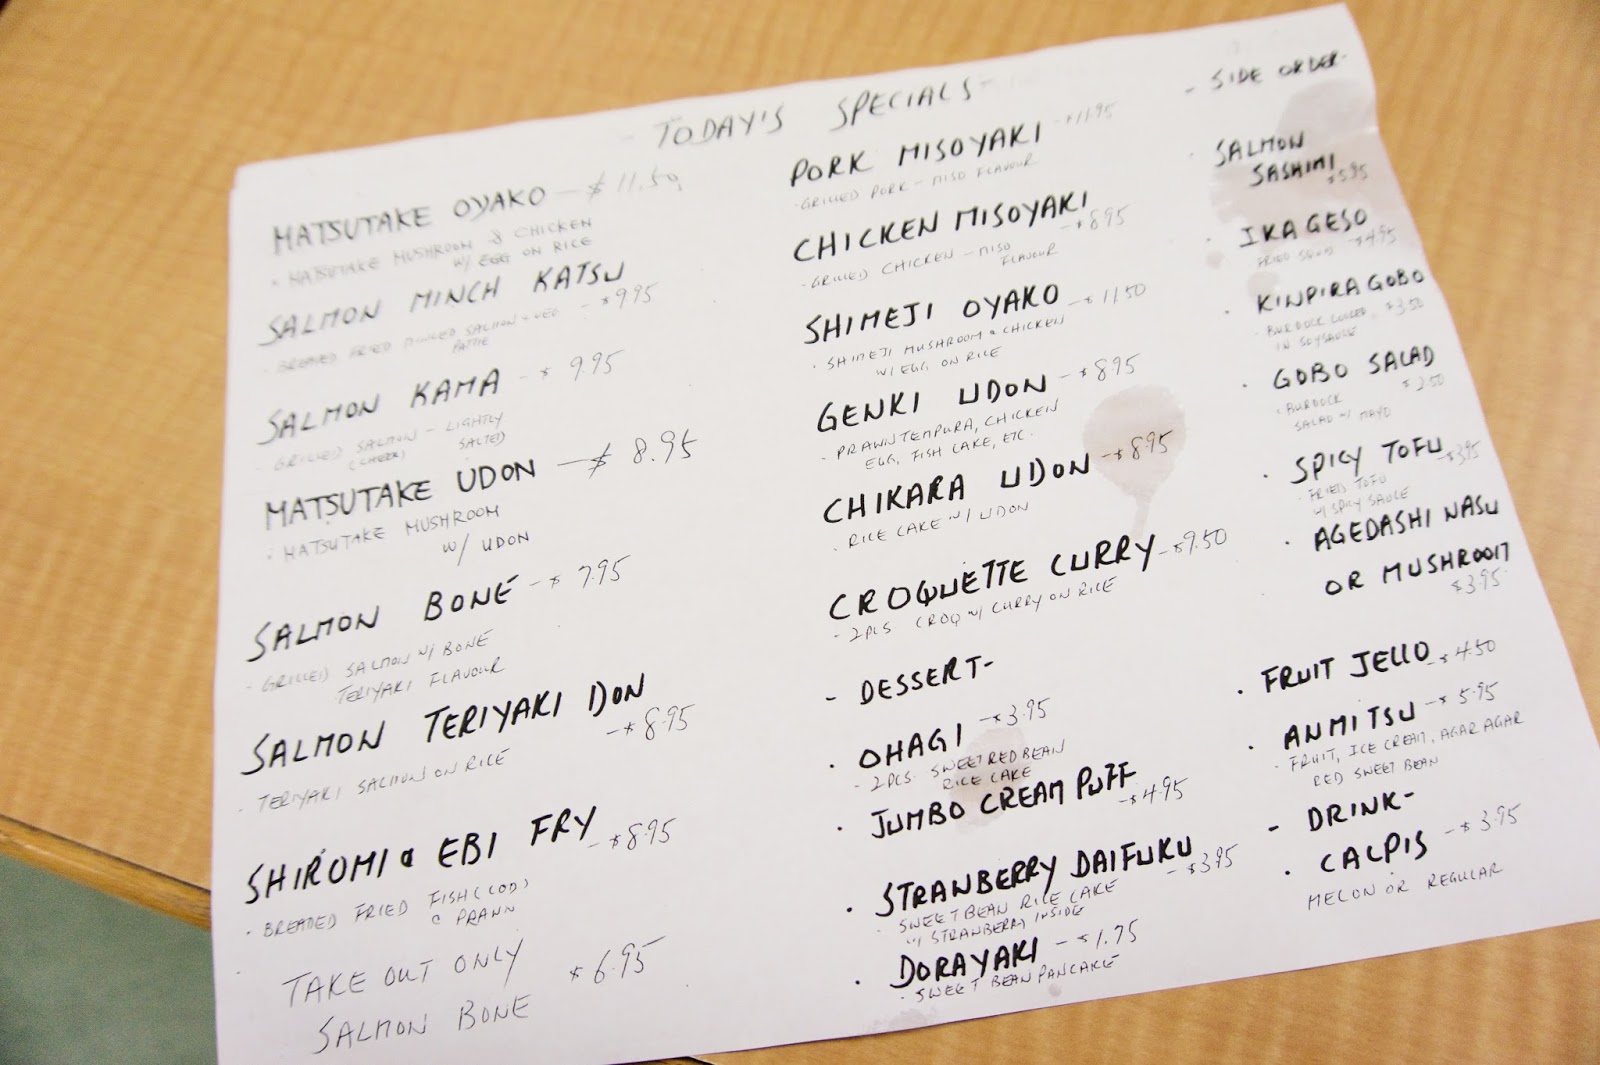 - TODAY'S SPECIALS -
MATSUTAKE OYAKO - $11.50
· MATSUTAKE MUSHROOM & CHICKEN
W/ EGG ON RICE
SALMON MINCH KATSU
- $9.95
· BREADED FRIED MINCED SALMON + VEG
PATTIE
SALMON KAMA - $9.95
· GRILLED SALMON - LIGHTLY
(CHEEK) SALTED
MATSUTAKE UDON - $8.95
· MATSUTAKE MUSHROOM
W/ UDON
SALMON BONE - $7.95
- GRILLED SALMON W/ BONE
TERIYAKI FLAVOUR
SALMON TERIYAKI DON
- $8.95
· TERIYAKI SALMON ON RICE
SHIROMI & EBI FRY
- $8.95
· BREADED FRIED FISH (COD)
& PRAWN
TAKE OUT ONLY
SALMON BONE $6.95
PORK MISOYAKI - $11.95
· GRILLED PORK - MISO FLAVOUR
CHICKEN MISOYAKI
- $8.95
· GRILLED CHICKEN - MISO
FLAVOUR
SHIMEJI OYAKO - $11.50
· SHIMEJI MUSHROOM & CHICKEN
W/ EGG ON RICE
GENKI UDON - $8.95
· PRAWN TEMPURA, CHICKEN
EGG, FISH CAKE, ETC.
CHIKARA UDON - $8.95
· RICE CAKE W/ UDON
CROQUETTE CURRY - $9.50
- 2PCS CROQ W/ CURRY ON RICE
- DESSERT -
· OHAGI - $3.95
· 2PCS. SWEET RED BEAN
RICE CAKE
· JUMBO CREAM PUFF
- $4.95
· STRANBERRY DAIFUKU
- $3.95
· SWEET BEAN RICE CAKE
W/ STRANBERRY INSIDE
· DORAYAKI - $1.75
· SWEET BEAN PANCAKE
- SIDE ORDER -
· SALMON
SASHIMI
$5.95
· IKA GESO
FRIED SQUID - $4.95
· KINPIRA GOBO
· BURDOCK COOKED $3.50
IN SOYSAUCE
· GOBO SALAD
· BURDOCK $3.50
SALAD W/ MAYO
· SPICY TOFU
- $3.95
· FRIED TOFU
W/ SPICY SAUCE
· AGEDASHI NASU
OR MUSHROOM
$3.95
· FRUIT JELLO - $4.50
· ANMITSU - $5.95
· FRUIT, ICE CREAM, AGAR AGAR
RED SWEET BEAN
- DRINK -
· CALPIS - $3.95
MELON OR REGULAR